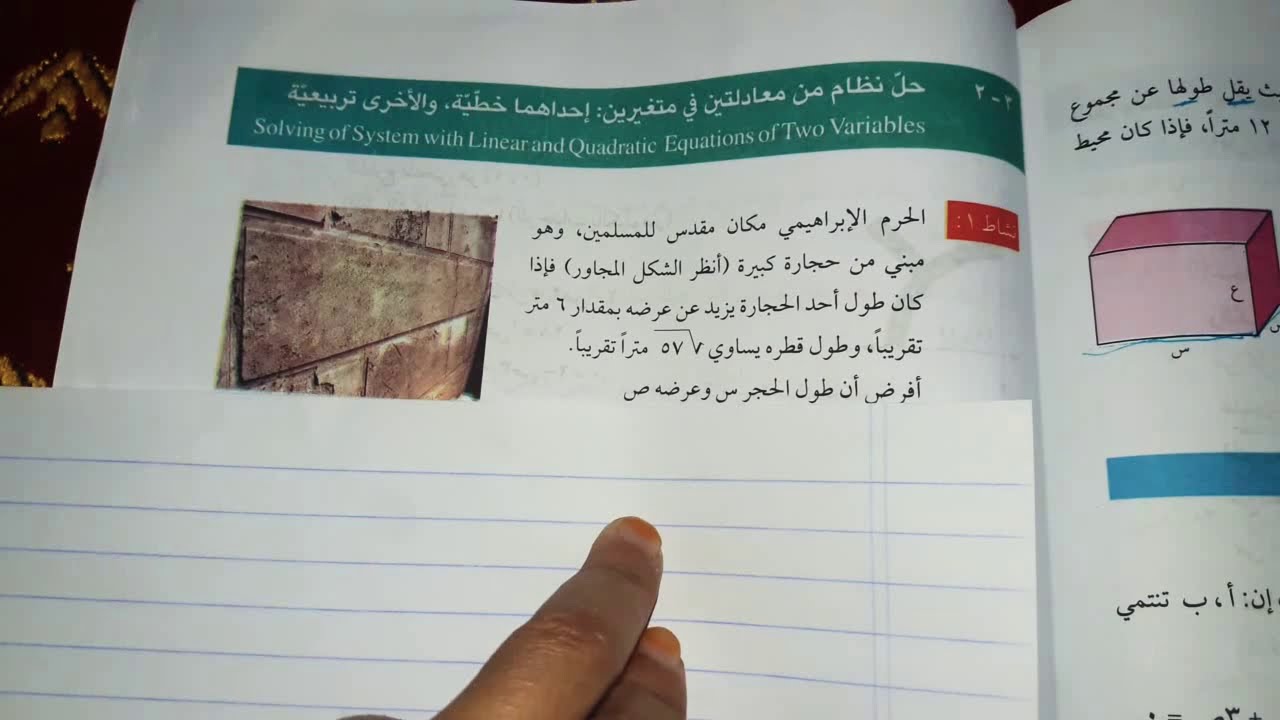 ٢ - ٢ حلّ نظام من معادلتين في متغيرين: إحداهما خطّيّة، والأخرى تربيعيّة
Solving of System with Linear and Quadratic Equations of Two Variables
نشاط ١: الحرم الإبراهيمي مكان مقدس للمسلمين، وهو
مبني من حجارة كبيرة (أنظر الشكل المجاور) فإذا
كان طول أحد الحجارة يزيد عن عرضه بمقدار ٦ متر
تقريباً، وطول قطره يساوي √٥٧ متراً تقريباً.
أفرض أن طول الحجر س وعرضه ص
يقل طولها عن مجموع
١٢ متراً، فإذا كان محيط
ع
س
إن: أ، ب تنتمي